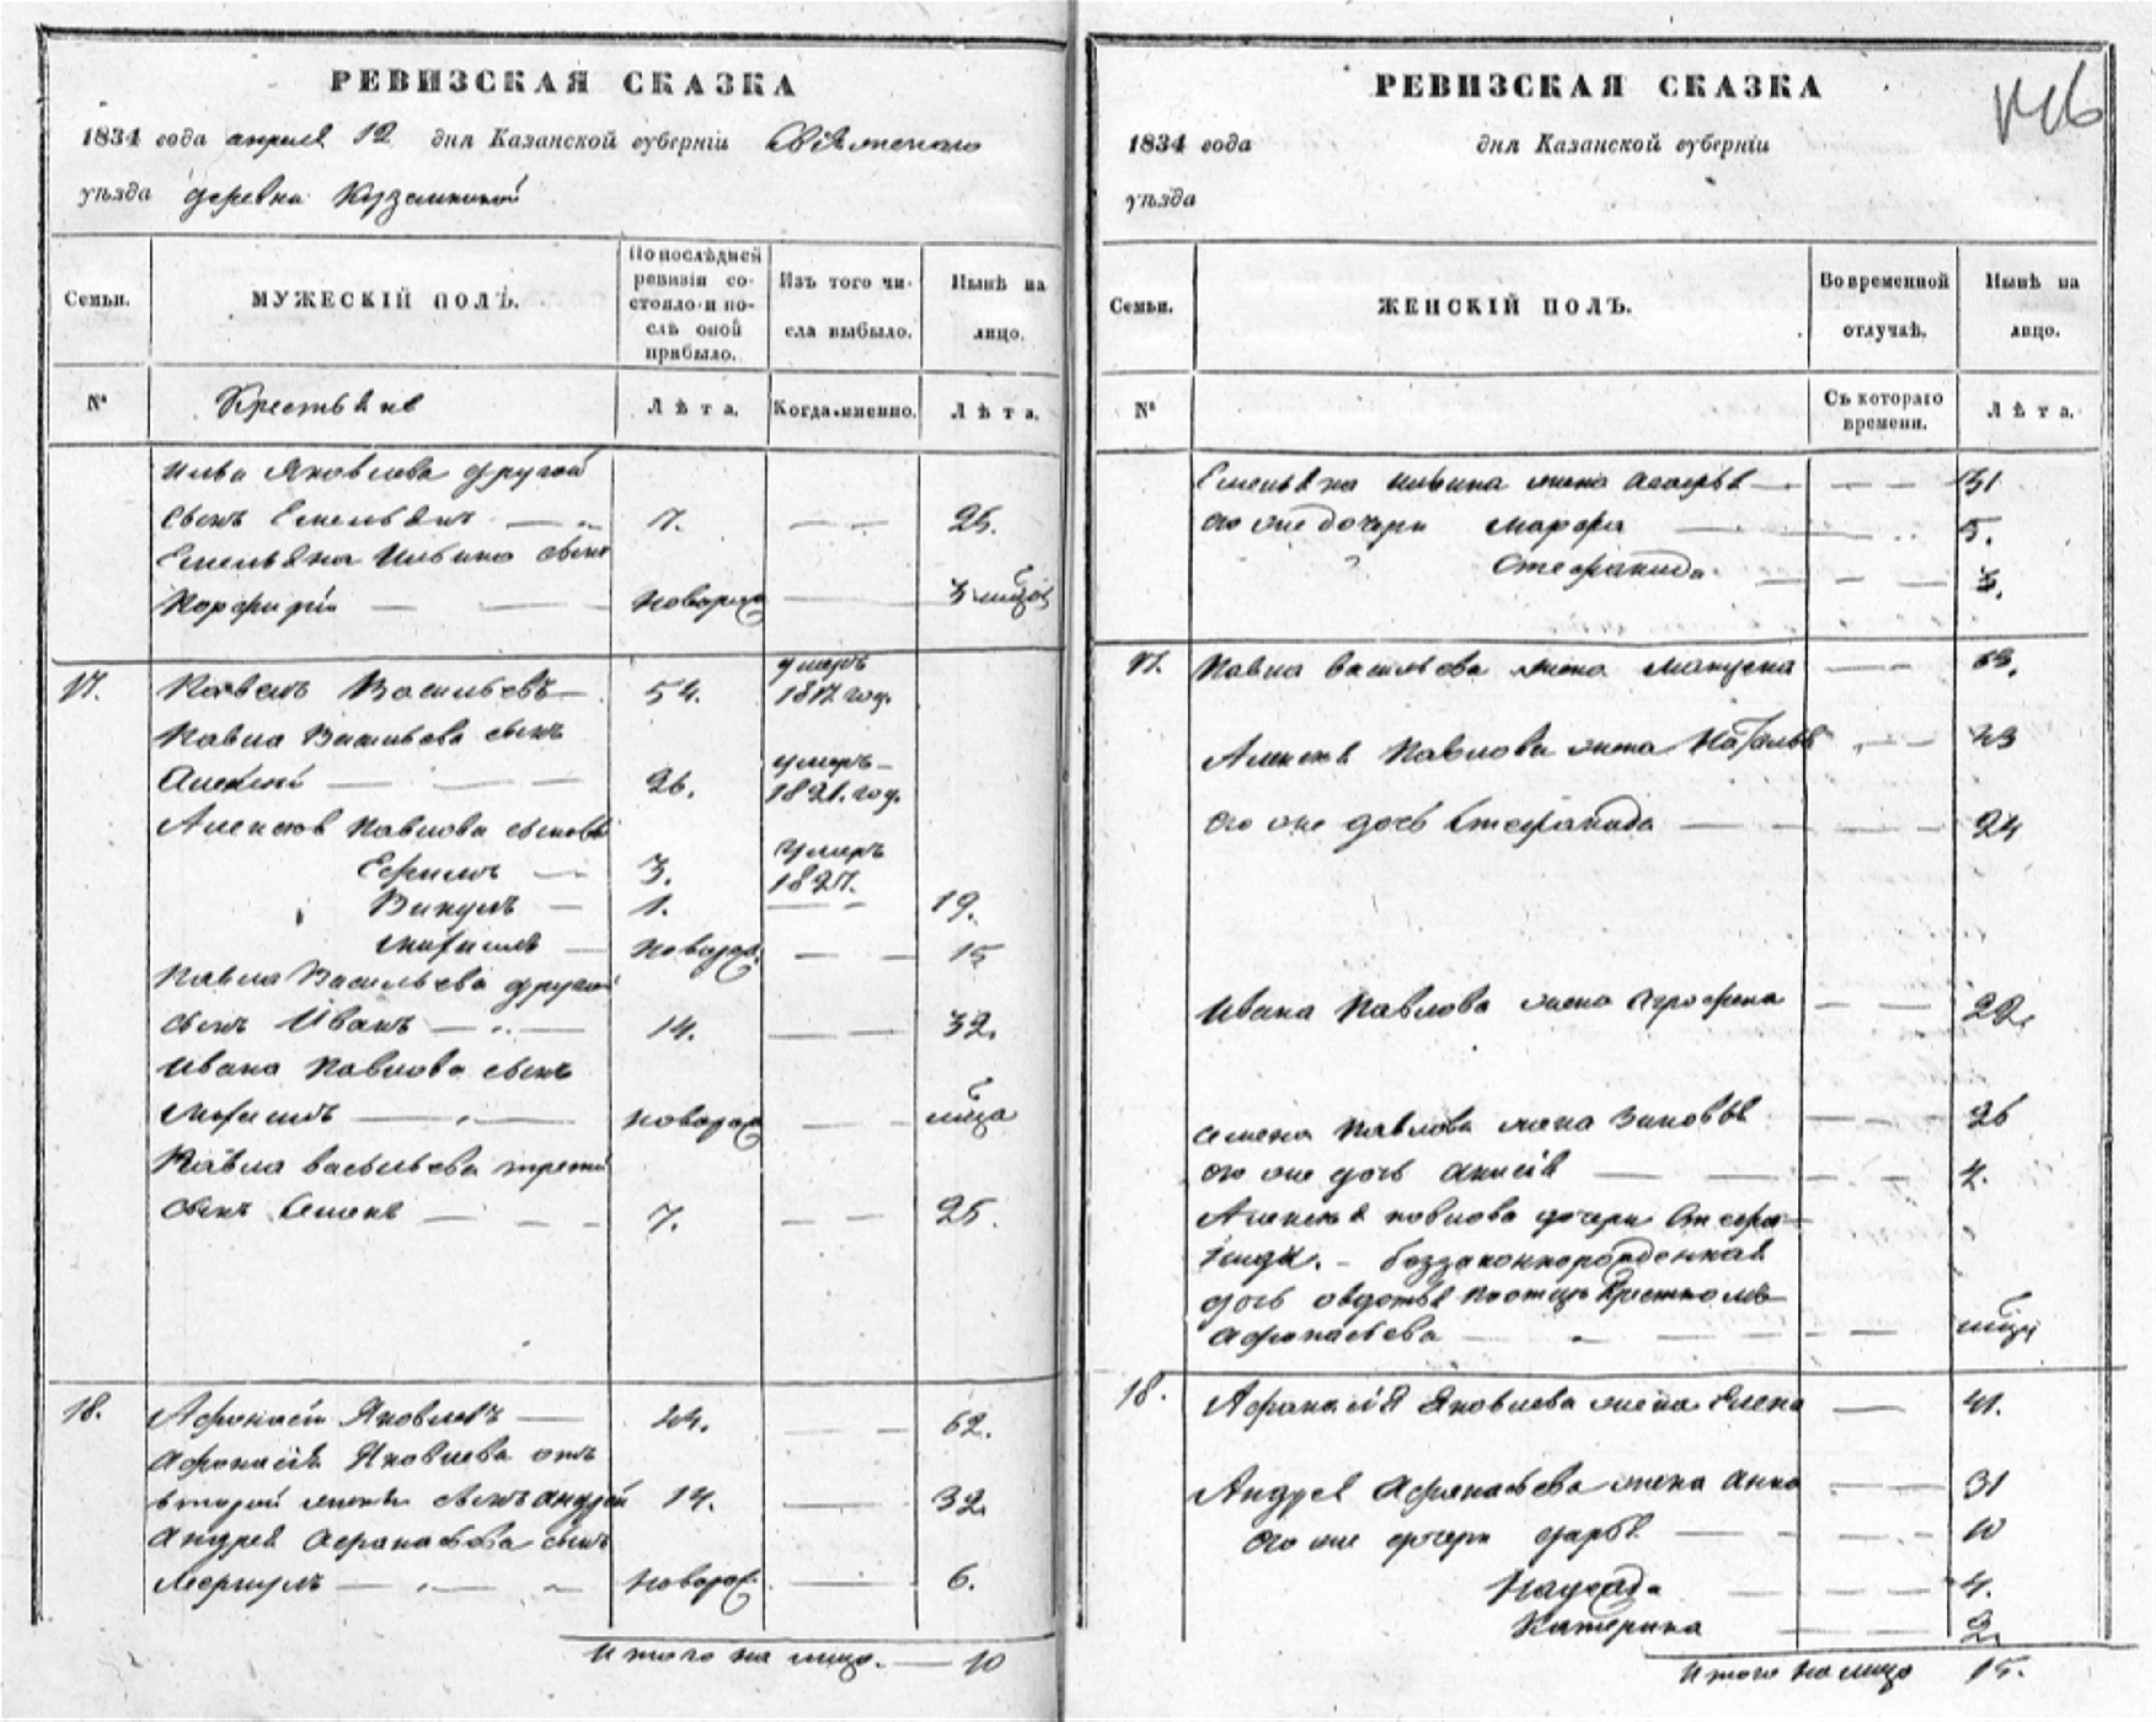 РЕВИЗСКАЯ СКАЗКА
1834 года апреля 12 дня Казанской губерніи Свіяжскаго
уѣзда деревни
Семьи.
МУЖЕСКІЙ ПОЛЪ.
По послѣдней ревизіи состояло и послѣ оной прибыло.
Изъ того числа выбыло.
Нынѣ на лицо.
№
Крестьяне
Лѣта.
Когда именно.
Лѣта.
Ильи Яковлева другой
сынъ Емельянъ — 7. — — 25.
Емельяна Ильина сынъ
Порфирій — — новорож —
17. Павелъ Васильевъ — 54. умеръ 1817 год.
Павла Васильева сынъ
Алексей — — — 26. умеръ — 1821. год.
Алексея Павлова сыновья
Ефимъ — 3. умеръ 1827.
Викулъ — 1. — — 19.
новорож. — — 15
Павла Васильева другой
сынъ Иванъ — — 14. — — 32.
Ивана Павлова сынъ
новорож — —
Павла Васильева третій
сынъ Семенъ — — — 7. — — 25.
18. Афонасій Яковлевъ — — — 62.
Афонасія Яковлева отъ
второй жены сынъ Андрей 14. — 32.
Андрея Афонасьева сынъ
Меркулъ — — — новорож. — 6.
Итого на лицо. — 10
РЕВИЗСКАЯ СКАЗКА
1834 года дня Казанской губерніи
уѣзда
Семьи.
ЖЕНСКІЙ ПОЛЪ.
Во временной отлучкѣ.
Нынѣ на лицо.
№
Съ котораго времени.
Лѣта.
Емельяна Ильина жена — — — — 31
его же дочери Марфа — — 5.
Стефанида — — — 3.
17. Павла Васильева жена — —
Алексея Павлова жена Наталья — — 43
его же дочь Стефанида — — — — 24
Ивана Павлова жена Агрофена — — 22.
Семена Павлова жена Зиновья — — 26
его же дочь Анисія — — — — 4.
Алексея Павлова дочери Стефа-
ниды. — беззаконнорожденная
дочь Овдотья
Афонасьева — — — — —
18. Афанасія Яковлева жена Елена — 41.
Андрея Афонасьева жена Анна — 31
его же дочери Дарья — — — 10
— — — 4.
Катерина — — 2.
Итого на лицо 15.